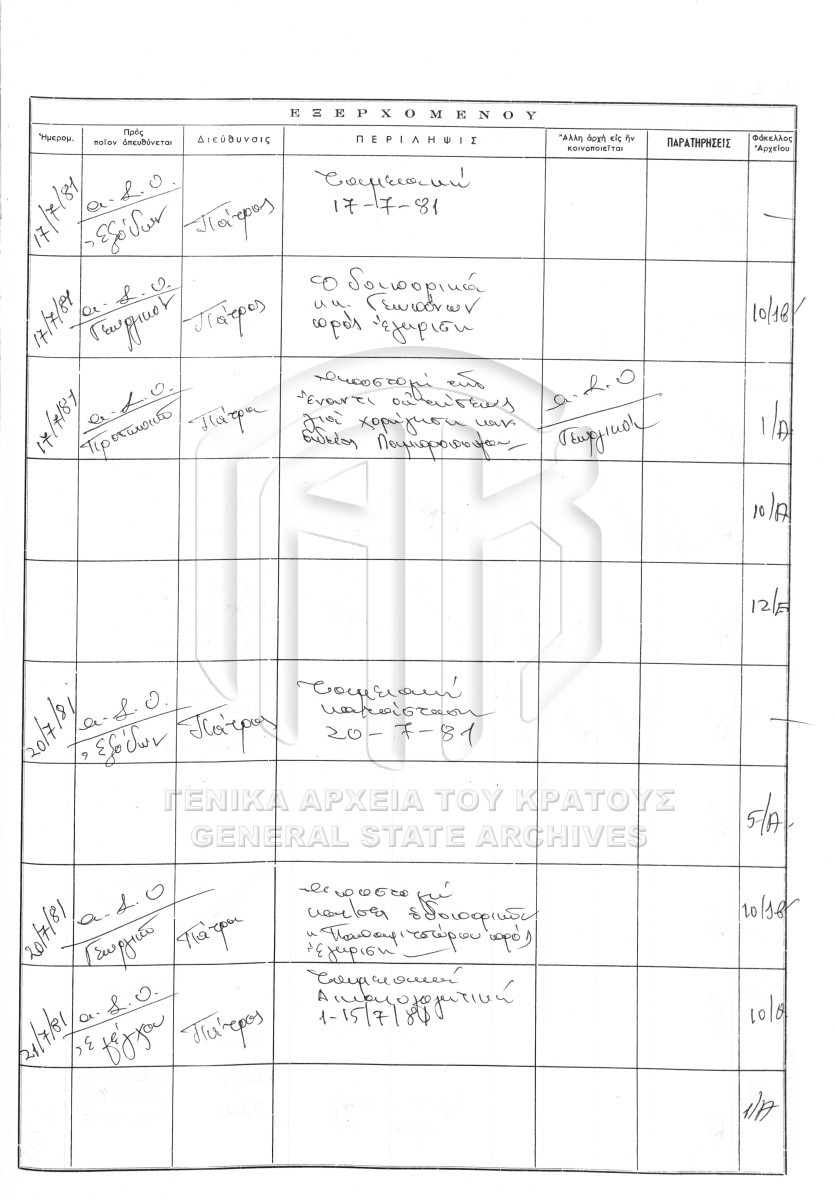 ΕΞΕΡΧΟΜΕΝΟΥ
Ἡμερομ.
Πρὸς
ποῖον ἀπευθύνεται
Διεύθυνσις
ΠΕΡΙΛΗΨΙΣ
Ἄλλη ἀρχὴ εἰς ἣν
κοινοποιεῖται
ΠΑΡΑΤΗΡΗΣΕΙΣ
Φάκελλος
Ἀρχείου
17/7/81
Α.S.O.
Ἐξόδων
Πάτρας
Ταμειακή
17-7-81
17/7/81
Α.S.O.
Γεωργικόν
Πάτρας
Ὁδοιπορικά
κ.κ. Γεωπόνων
πρός ἔγκριση
10/1β
17/7/81
Α.S.O.
Προσωπικό
Πάτρα
Ἀποστολή τῆς
ἔναντι αἰτήσεως
γιά χορήγηση καν
ἀδείας
Α.S.O
Γεωργικόν
1/Α
10/Α
12/Ε
20/7/81
Α.S.O.
Ἐξόδων
Πάτρας
Ταμειακή
κατάσταση
20-7-81
5/Α
20/7/81
Α.S.O
Γεωργικό
Πάτρα
Ἀποστολή
πρός
ἔγκριση
10/1β
21/7/81
Α.S.O.
Ἐλέγχου
Πάτρας
Ταμειακή
Δικαιολογητικά
1-15/7/81
10/θ
1/Α
ΓΕΝΙΚΑ ΑΡΧΕΙΑ ΤΟΥ ΚΡΑΤΟΥΣ
GENERAL STATE ARCHIVES